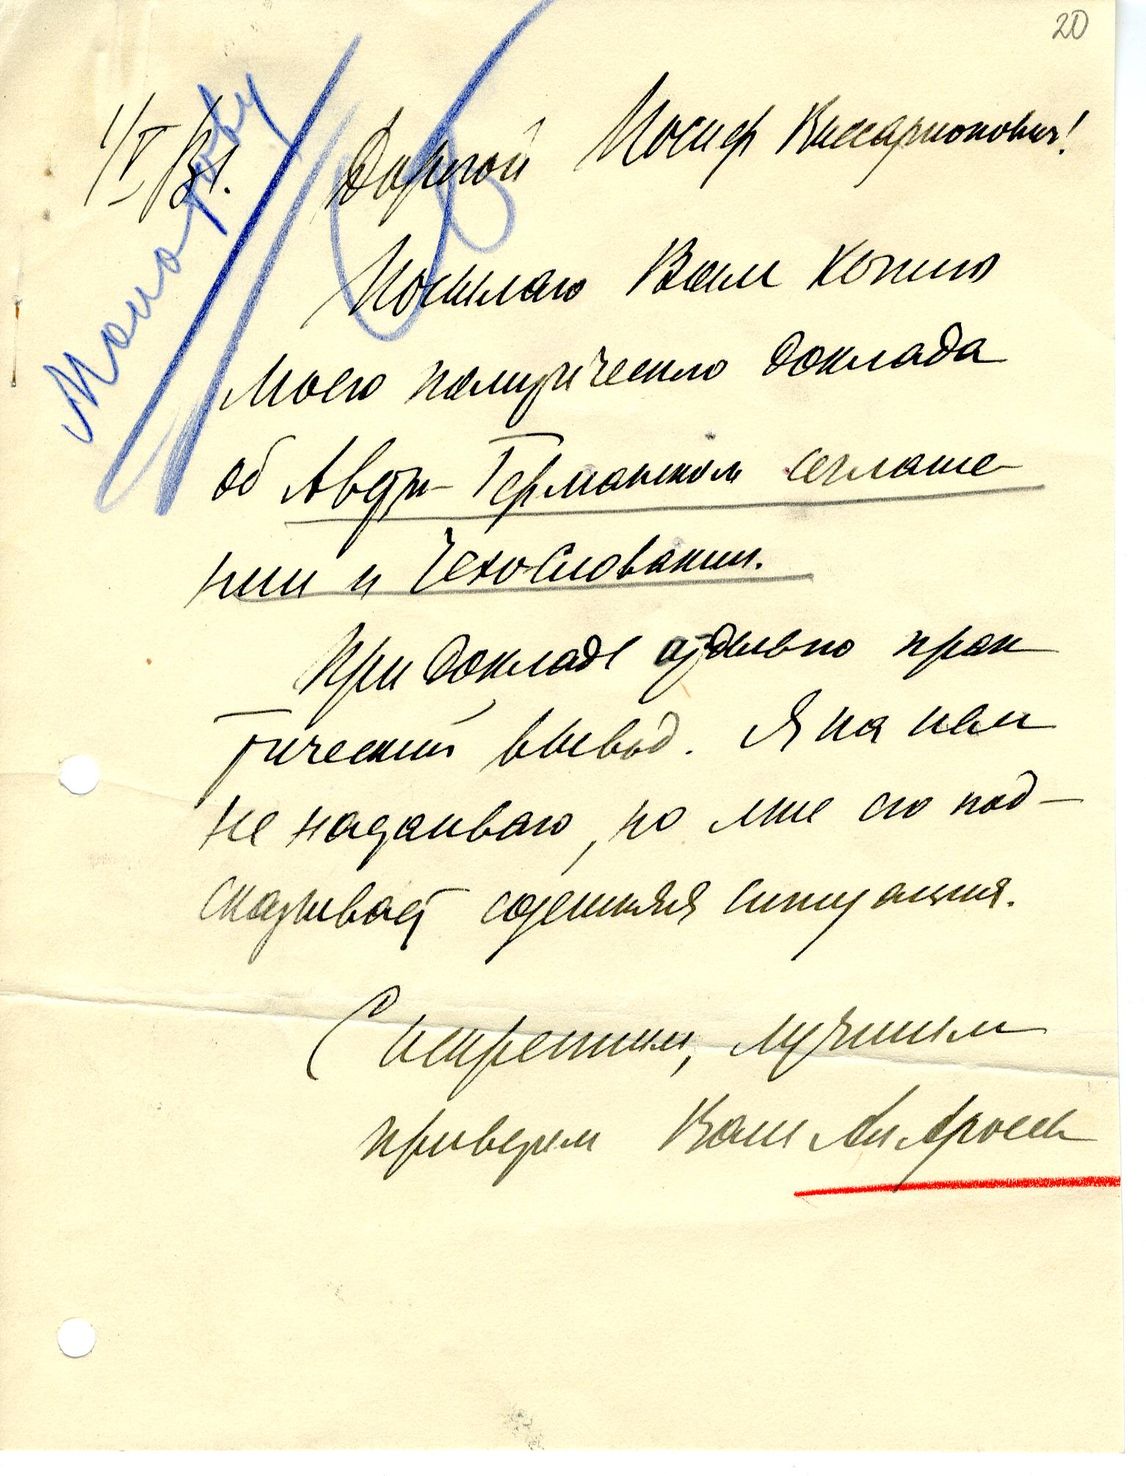 20
1/V/31. Дорогой Иосиф Виссарионович!
Посылаю Вам копию
моего политического доклада
об Австро-Германском соглаше-
нии и Чехословакии.
При докладе отдельно прак
тический вывод. Я на нем
не настаиваю, но мне его под-
сказывает здешняя ситуация.
С искренним, лучшим
приветом Ваш Ал Аросев